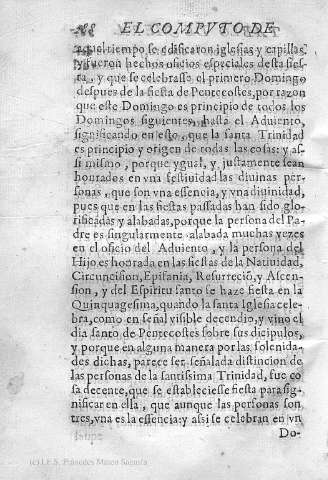 EL COMPVTO DE
aquel tiempo se edificaron iglesias y capillas
y fueron hechos oficios especiales desta fies
ta, y que se celebrasse el primero Domingo
despues de la fiesta de Pentecostes, por razon
que este Domingo es principio de todos los
Domingos siguientes, hasta el Aduiento,
significando en esto, que la santa Trinidad
es principio y origen de todas las cosas: y as
si mismo, porque ygual, y justamente sean
honrados en vna festiuidad las diuinas per
sonas, que son vna essencia, y vna diuinidad,
pues que en las fiestas passadas han sido glo
rificadas y alabadas, porque la persona del Pa
dre es singularmente alabada muchas vezes
en el oficio del Aduiento, y la persona del
Hijo es honrada en las fiestas de la Natiuidad,
Circuncision, Epifania, Resurreciō, y Ascen
sion, y del Espiritu santo se haze fiesta en la
Quinquagesima, quando la santa Iglesia cele
bra, como en señal visible decendio, y vino el
dia santo de Pentecostes sobre sus dicipulos,
y porque en alguna manera por las solenida
des dichas, parece ser señalada distincion de
las personas de la santissima Trinidad, fue co
sa decente, que se estableciesse fiesta para sig
nificar en ella, que aunque las personas son
tres, vna es la essencia: y assi se celebran en vn
Do-
(c) I.E.S. Práxedes Mateo Sagasta